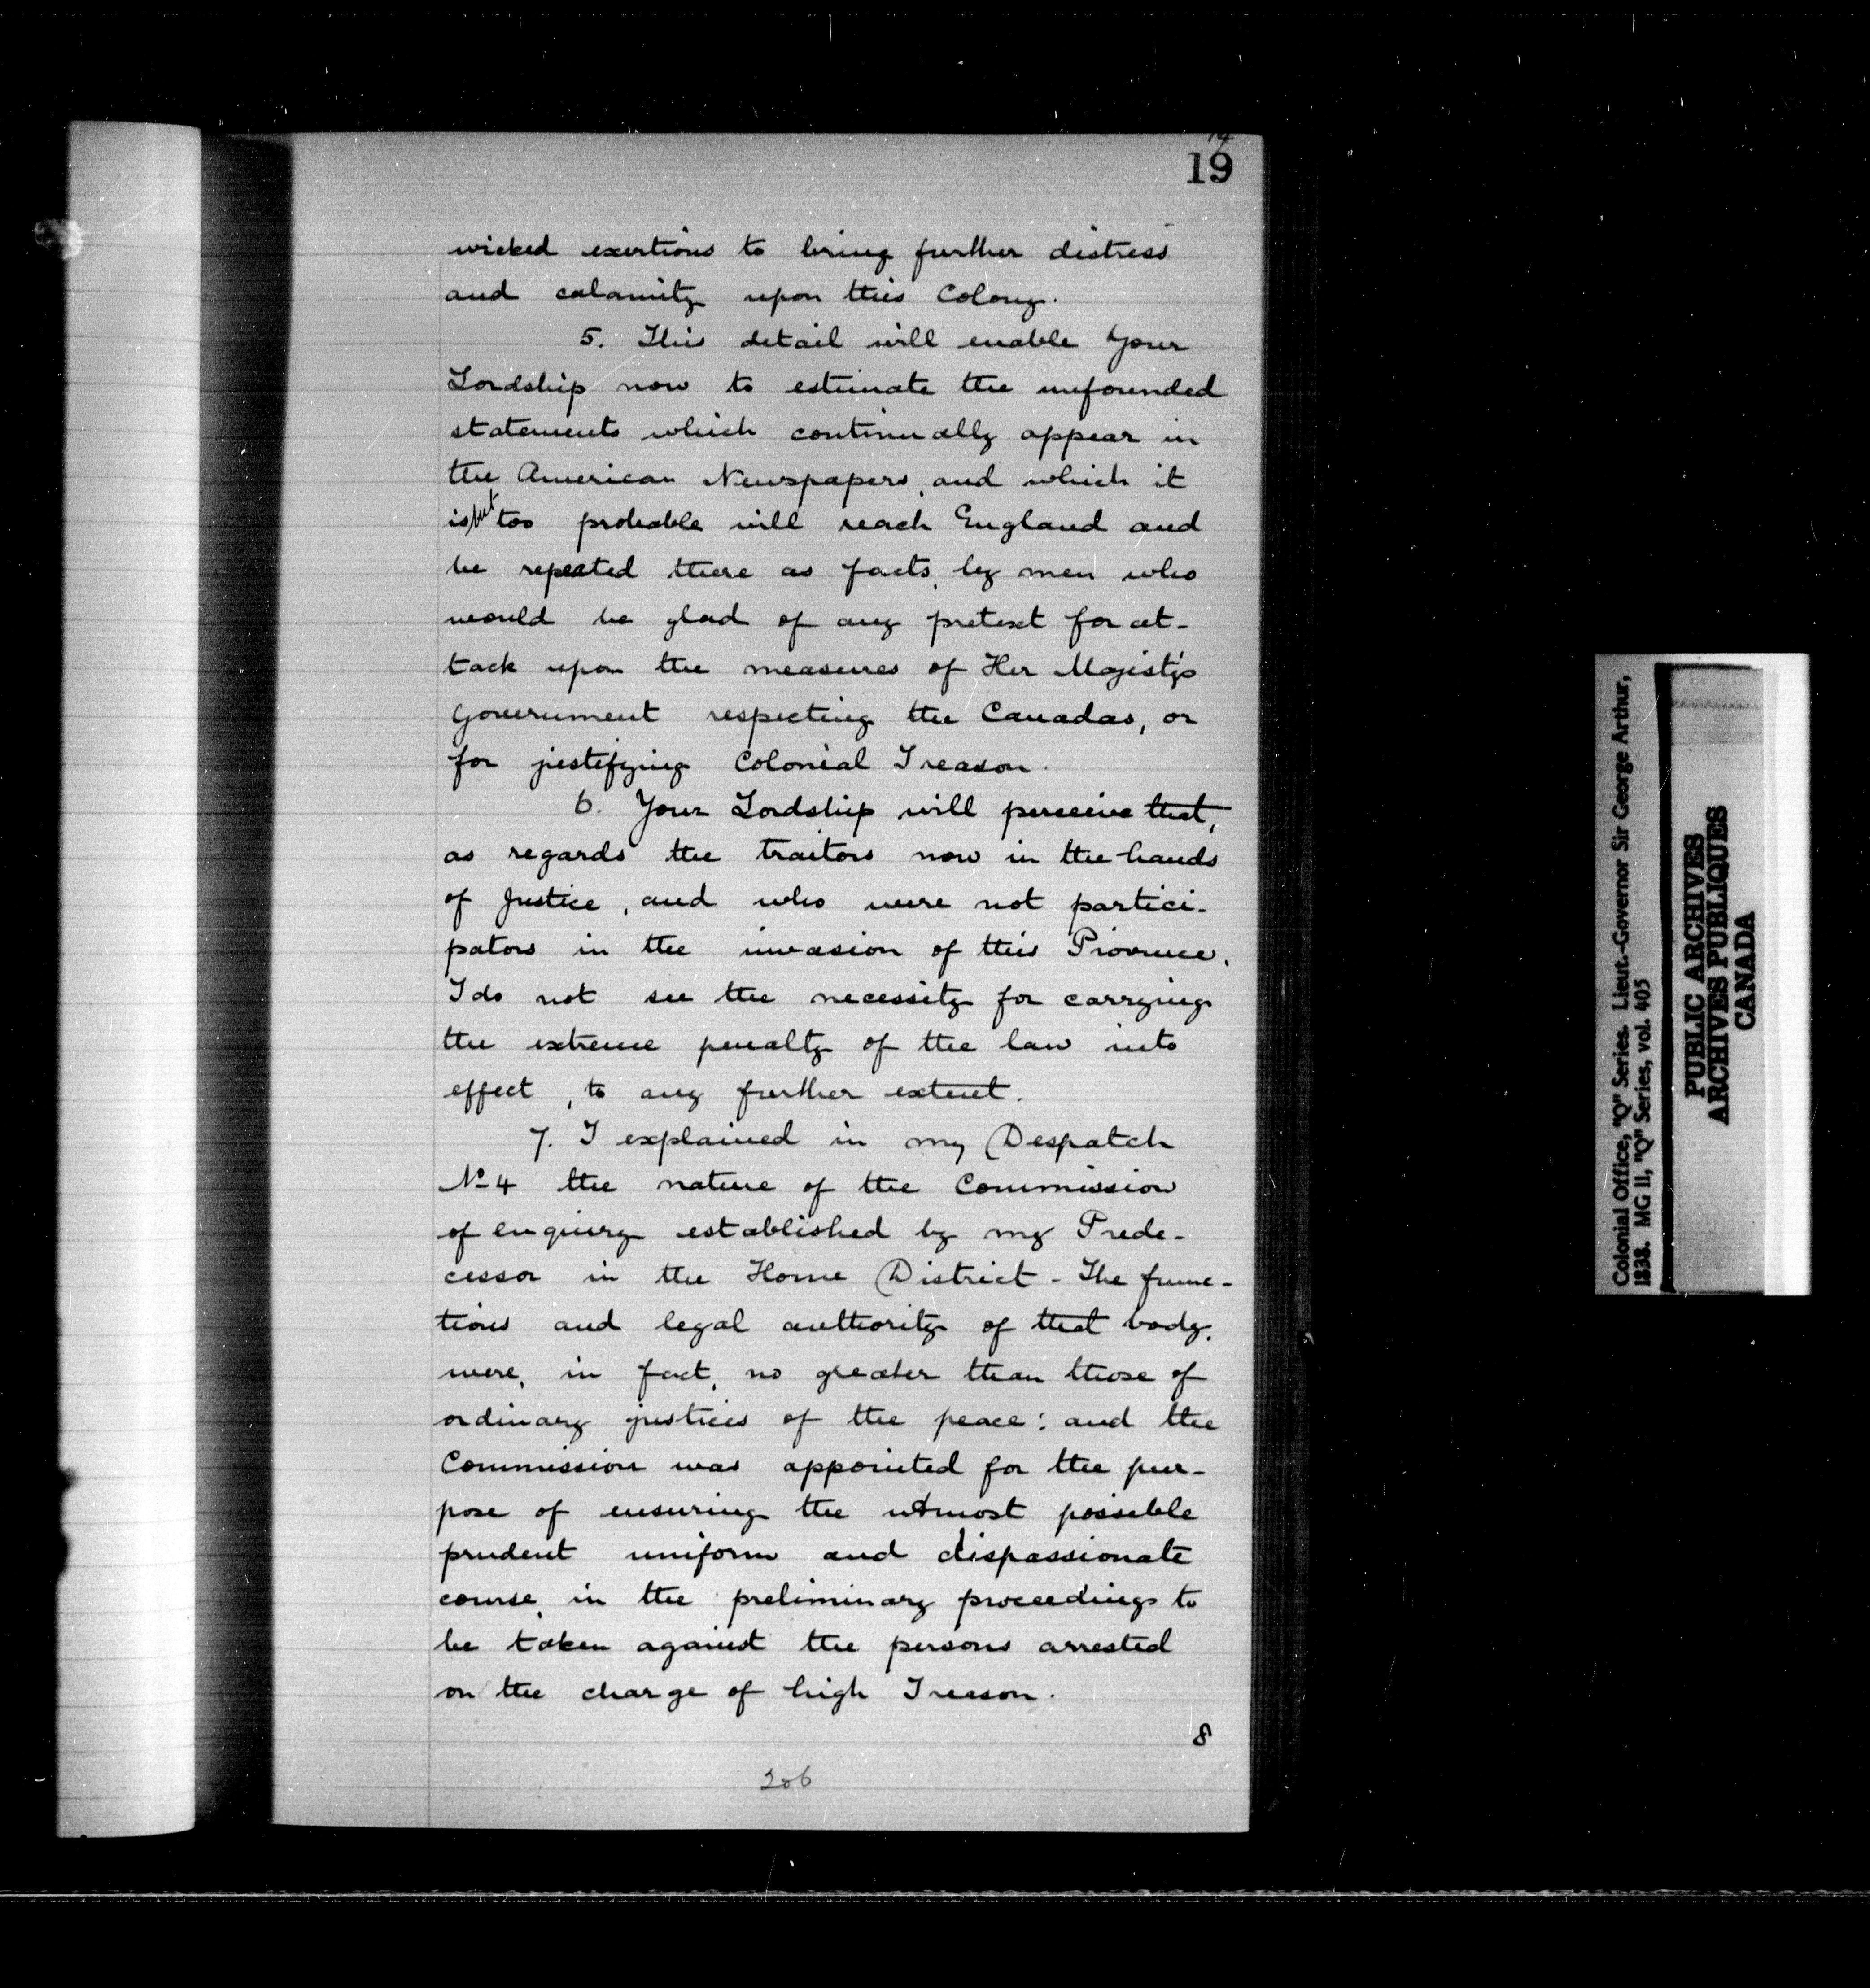 19
wicked exertions to bring further distress
and calamity upon this Colony.
5. This detail will enable Your
Lordship now to estimate the unfounded
statements which continually appear in
the American Newspapers, and which it
is but too probable will reach England and
be repeated there as facts, by men who
would be glad of any pretext for at-
tack upon the measures of Her Majesty's
Government respecting the Canadas, or
for justifying Colonial Treason.
6. Your Lordship will perceive that,
as regards the traitors now in the hands
of Justice, and who were not partici-
pators in the invasion of this Province,
I do not see the necessity for carrying
the extreme penalty of the law into
effect, to any further extent.
7. I explained in my Despatch
No 4 the nature of the Commission
of enquiry established by my Prede-
cessor in the Home District - The func-
tions and legal authority of that body,
were, in fact, no greater than those of
ordinary justices of the peace: and the
Commission was appointed for the pur-
pose of ensuring the utmost possible
prudent uniform and dispassionate
course, in the preliminary proceedings to
be taken against the persons arrested
on the charge of high Treason.
8
206
Colonial Office, "Q" Series. Lieut.-Governor Sir George Arthur,
1838. MG 11, "Q" Series, vol. 405
PUBLIC ARCHIVES
ARCHIVES PUBLIQUES
CANADA